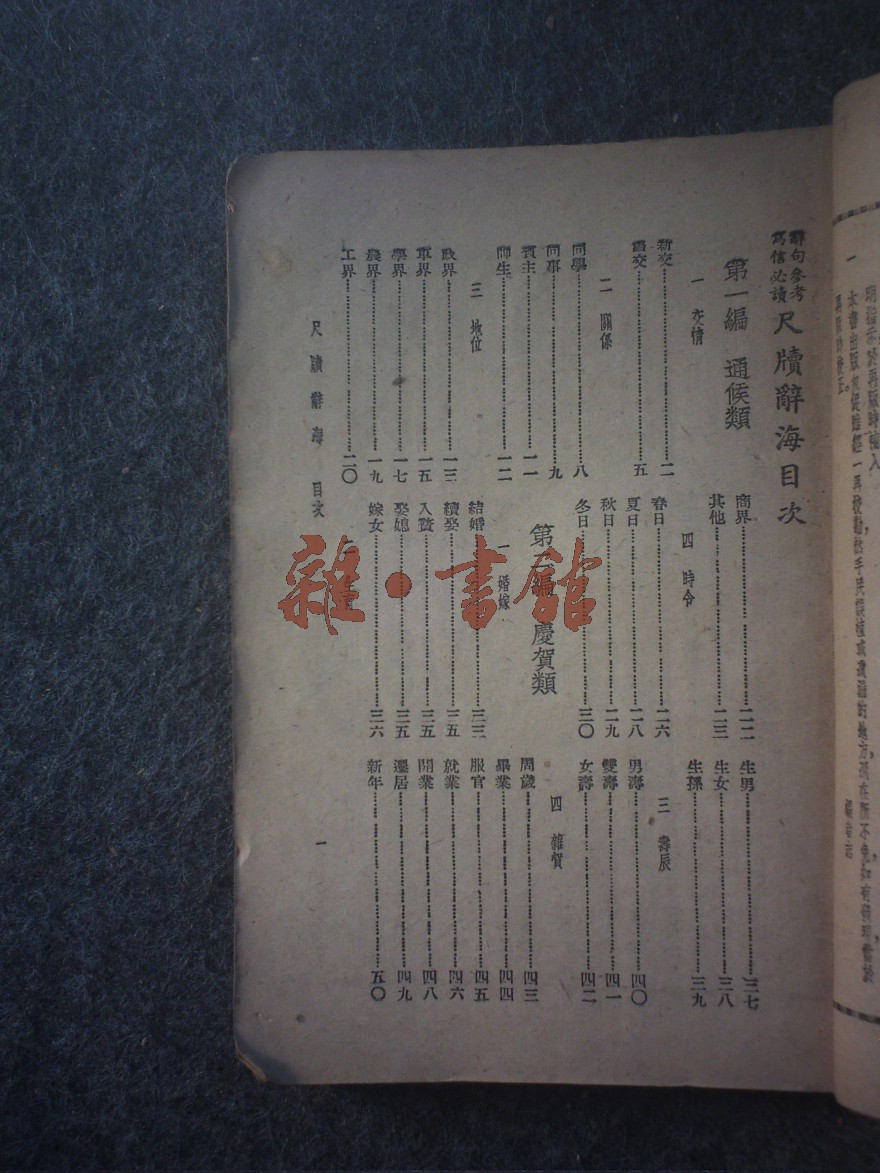 辭句參考
寫信必讀
尺牘辭海目次
第一編 通候類
一 交情
新交……二
舊交……五
二 關係
同學……八
同事……九
賓主……一一
師生……一二
三 地位
政界……一三
軍界……一五
學界……一七
農界……一九
工界……二〇
商界……二二
其他……二三
四 時令
春日……二六
夏日……二八
秋日……二九
冬日……三〇
第二編 慶賀類
一 婚嫁
結婚……三三
續娶……三五
入贅……三五
娶媳……三五
嫁女……三六
生男……三七
生女……三八
生孫……三九
三 壽辰
男壽……四〇
雙壽……四一
女壽……四二
四 雜賀
周歲……四三
畢業……四四
服官……四五
就業……四六
開業……四八
遷居……四九
新年……五〇
尺牘辭海 目次
一
雜·書館